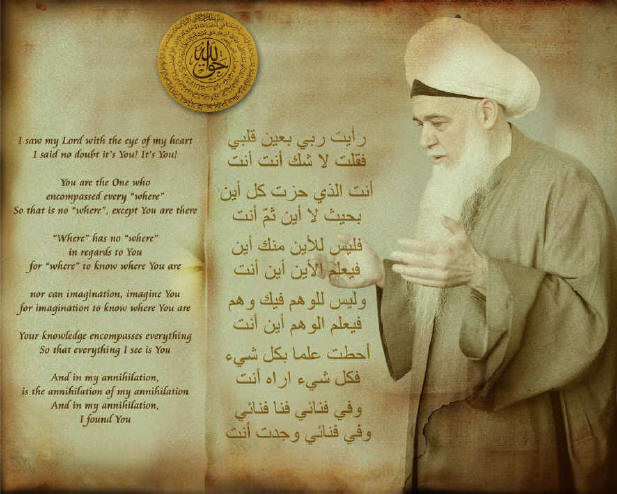 الله
حق
I saw my Lord with the eye of my heart
I said no doubt it's You! It's You!
You are the One who
encompassed every "where"
So that is no "where", except You are there
"Where" has no "where"
in regards to You
for "where" to know where You are
nor can imagination, imagine You
for imagination to know where You are
Your knowledge encompasses everything
So that everything I see is You
And in my annihilation,
is the annihilation of my annihilation
And in my annihilation,
I found You
رأيت ربي بعين قلبي
فقلت لا شك أنت أنت
أنت الذي حزت كل أين
بحيث لا أين ثمّ أنت
فليس للأين منك أين
فيعلم الأين أين أنت
وليس للوهم فيك وهم
فيعلم الوهم أين أنت
أحطت علما بكل شيء
فكل شيء اراه أنت
وفي فنائي فنا فنائي
وفي فنائي وجدت أنت